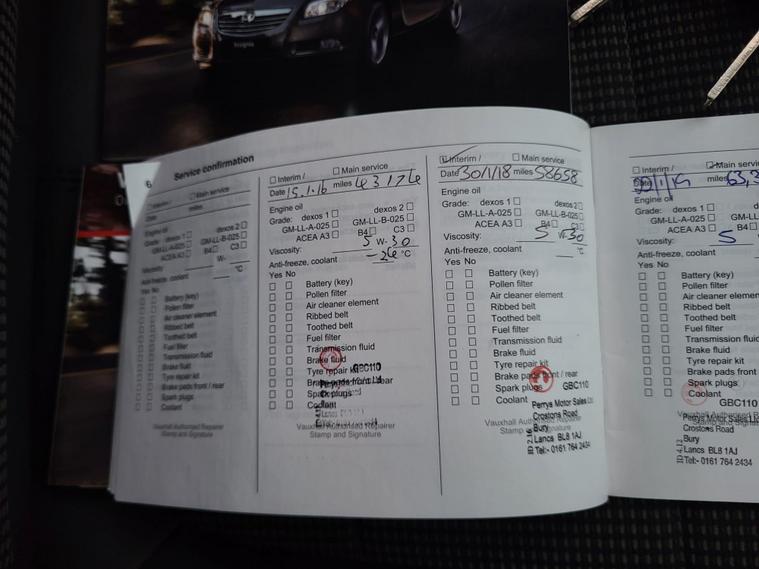 Insignia
6
Service confirmation
☐ Interim / ☐ Main service
Date miles
Engine oil
Grade: dexos 1 ☐ dexos 2 ☐
GM-LL-A-025 ☐ GM-LL-B-025 ☐
ACEA A3 ☐ B4 ☐ C3 ☐
Viscosity: W-
Anti-freeze, coolant °C
Yes No
☐ ☐ Battery (key)
☐ ☐ Pollen filter
☐ ☐ Air cleaner element
☐ ☐ Ribbed belt
☐ ☐ Toothed belt
☐ ☐ Fuel filter
☐ ☐ Transmission fluid
☐ ☐ Brake fluid
☐ ☐ Tyre repair kit
☐ ☐ Brake pads front / rear
☐ ☐ Spark plugs
☐ ☐ Coolant
Vauxhall Authorised Repairer
Stamp and Signature
☐ Interim / ☐ Main service
Date 15.1.16 miles 43176
Engine oil
Grade: dexos 1 ☐ dexos 2 ☐
GM-LL-A-025 ☐ GM-LL-B-025 ☐
ACEA A3 ☐ B4 ☐ C3 ☐
Viscosity: 5 W-30
Anti-freeze, coolant -36 °C
Yes No
☐ ☐ Battery (key)
☐ ☐ Pollen filter
☐ ☐ Air cleaner element
☐ ☐ Ribbed belt
☐ ☐ Toothed belt
☐ ☐ Fuel filter
☐ ☐ Transmission fluid
☐ ☐ Brake fluid
☐ ☐ Tyre repair kit GBC110
☐ ☐ Brake pads front / rear
☐ ☐ Spark plugs
☐ ☐ Coolant
Vauxhall Authorised Repairer
Stamp and Signature
☑ Interim / ☐ Main service
Date 30/1/18 miles 58658
Engine oil
Grade: dexos 1 ☐ dexos 2 ☐
GM-LL-A-025 ☐ GM-LL-B-025 ☐
ACEA A3 ☐ B4 ☐ C3 ☐
Viscosity: 5 W-30
Anti-freeze, coolant °C
Yes No
☐ ☐ Battery (key)
☐ ☐ Pollen filter
☐ ☐ Air cleaner element
☐ ☐ Ribbed belt
☐ ☐ Toothed belt
☐ ☐ Fuel filter
☐ ☐ Transmission fluid
☐ ☐ Brake fluid
☐ ☐ Tyre repair kit
☐ ☐ Brake pads front / rear
☐ ☐ Spark plugs GBC110
☐ ☐ Coolant
Perrys Motor Sales Ltd
Crostons Road
Bury
Lancs BL8 1AJ
Tel:- 0161 764 2434
Vauxhall Authorised Repairer
Stamp and Signature
☐ Interim / ☑ Main service
Date miles 63,3
Engine oil
Grade: dexos 1 ☐
GM-LL-A-025 ☐
ACEA A3 ☐
Viscosity: 5
Anti-freeze, coolant
Yes No
☐ ☐ Battery (key)
☐ ☐ Pollen filter
☐ ☐ Air cleaner element
☐ ☐ Ribbed belt
☐ ☐ Toothed belt
☐ ☐ Fuel filter
☐ ☐ Transmission fluid
☐ ☐ Brake fluid
☐ ☐ Tyre repair kit
☐ ☐ Brake pads front
☐ ☐ Spark plugs
☐ ☐ Coolant
GBC110
Perrys Motor Sales
Crostons Road
Bury
Lancs BL8 1AJ
Tel:- 0161 764 2434